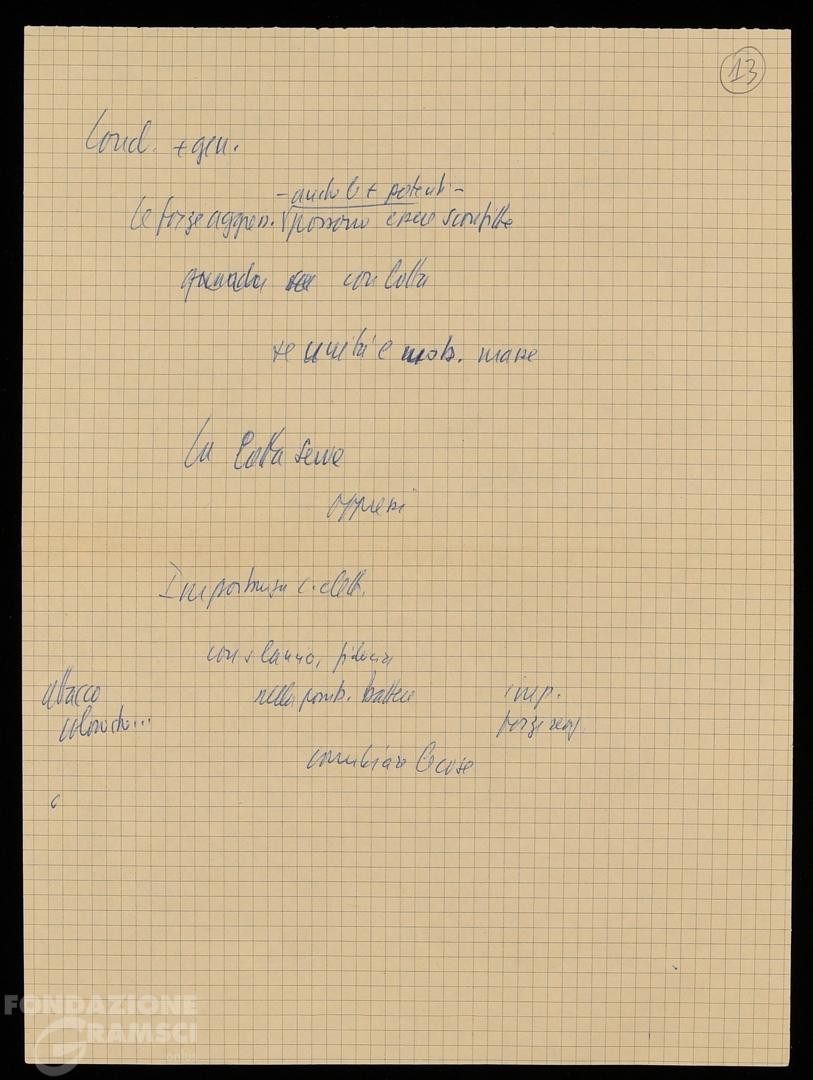 13
Cond. + gen.
- anche le + potenti -
Le forze aggress. possono essere sconfitte
quando con lotta
se unità e mob. masse
La lotta serve
oppressi
Importanza c. elett.
con slancio, fiducia
attacco nella possib. battere imp.
colonial... forze reaz.
cambiare le cose
FONDAZIONE
GRAMSCI
onlus